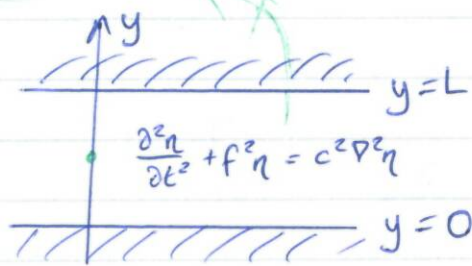 y
y=L
∂²η/∂t² + f²η = c²∇²η
y=0